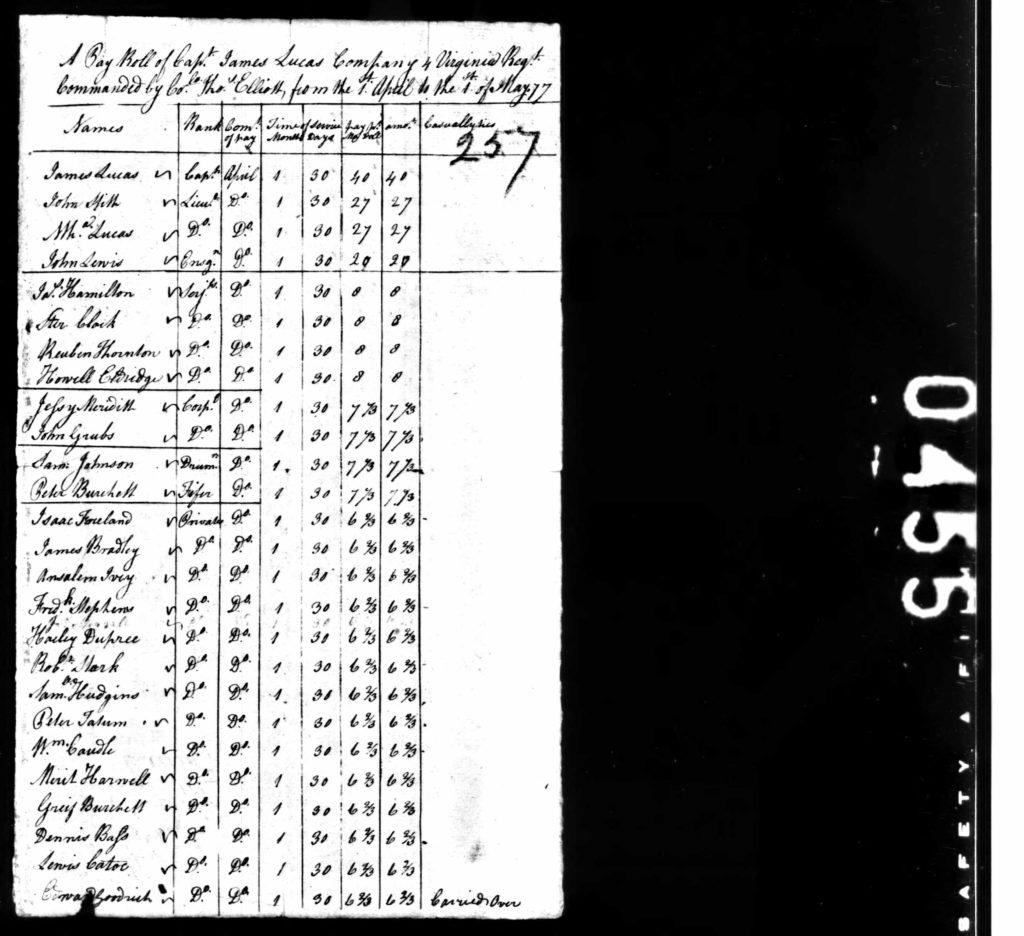 A Pay Roll of Capt. James Lucas Company 4 Virginia Regt.
Commanded by Colo. Thos. Elliott, from the 1st. April to the 1st. of May 77
Names Rank Comt. of pay Time of Service Months Days pay pr. Mo. amot. Casualtys
257
James Lucas Capt. April 1 30 40 40
John Lieut. Do. 1 30 27 27
Nthal. Lucas Do. Do. 1 30 27 27
John Lewis Ensgn. Do. 1 30 20 20
Jas. Hamilton Serjt. Do. 1 30 8 8
Do. Do. 1 30 8 8
Reuben Thornton Do. Do. 1 30 8 8
Howell Eldridge Do. Do. 1 30 8 8
Jessy Meridith Corpl. Do. 1 30 7 1/3 7 1/3
John Grubs Do. Do. 1 30 7 1/3 7 1/3
Sam. Johnson Drumr. Do. 1 30 7 1/3 7 1/3
Peter Burchett Fifer Do. 1 30 7 1/3 7 1/3
Isaac Private Do. 1 30 6 2/3 6 2/3
James Bradley Do. Do. 1 30 6 2/3 6 2/3
Ansalem Ivey Do. Do. 1 30 6 2/3 6 2/3
Fredk. Stephens Do. Do. 1 30 6 2/3 6 2/3
Haley Dupree Do. Do. 1 30 6 2/3 6 2/3
Robt. Stark Do. Do. 1 30 6 2/3 6 2/3
Saml. Hudgins Do. Do. 1 30 6 2/3 6 2/3
Peter Tatum Do. Do. 1 30 6 2/3 6 2/3
Wm. Caudle Do. Do. 1 30 6 2/3 6 2/3
Merit Harwell Do. Do. 1 30 6 2/3 6 2/3
Greif Burchett Do. Do. 1 30 6 2/3 6 2/3
Dennis Bass Do. Do. 1 30 6 2/3 6 2/3
Lewis Catoe Do. Do. 1 30 6 2/3 6 2/3
Edward Goodrich Do. Do. 1 30 6 2/3 6 2/3 Carried Over
0455
SAFETY FI